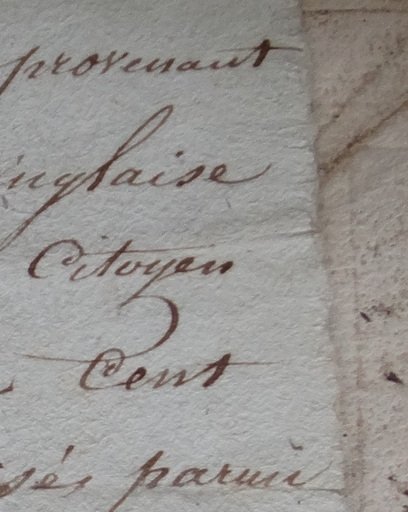 provenant
inglaise
Citoyen
Cent
sés parmi